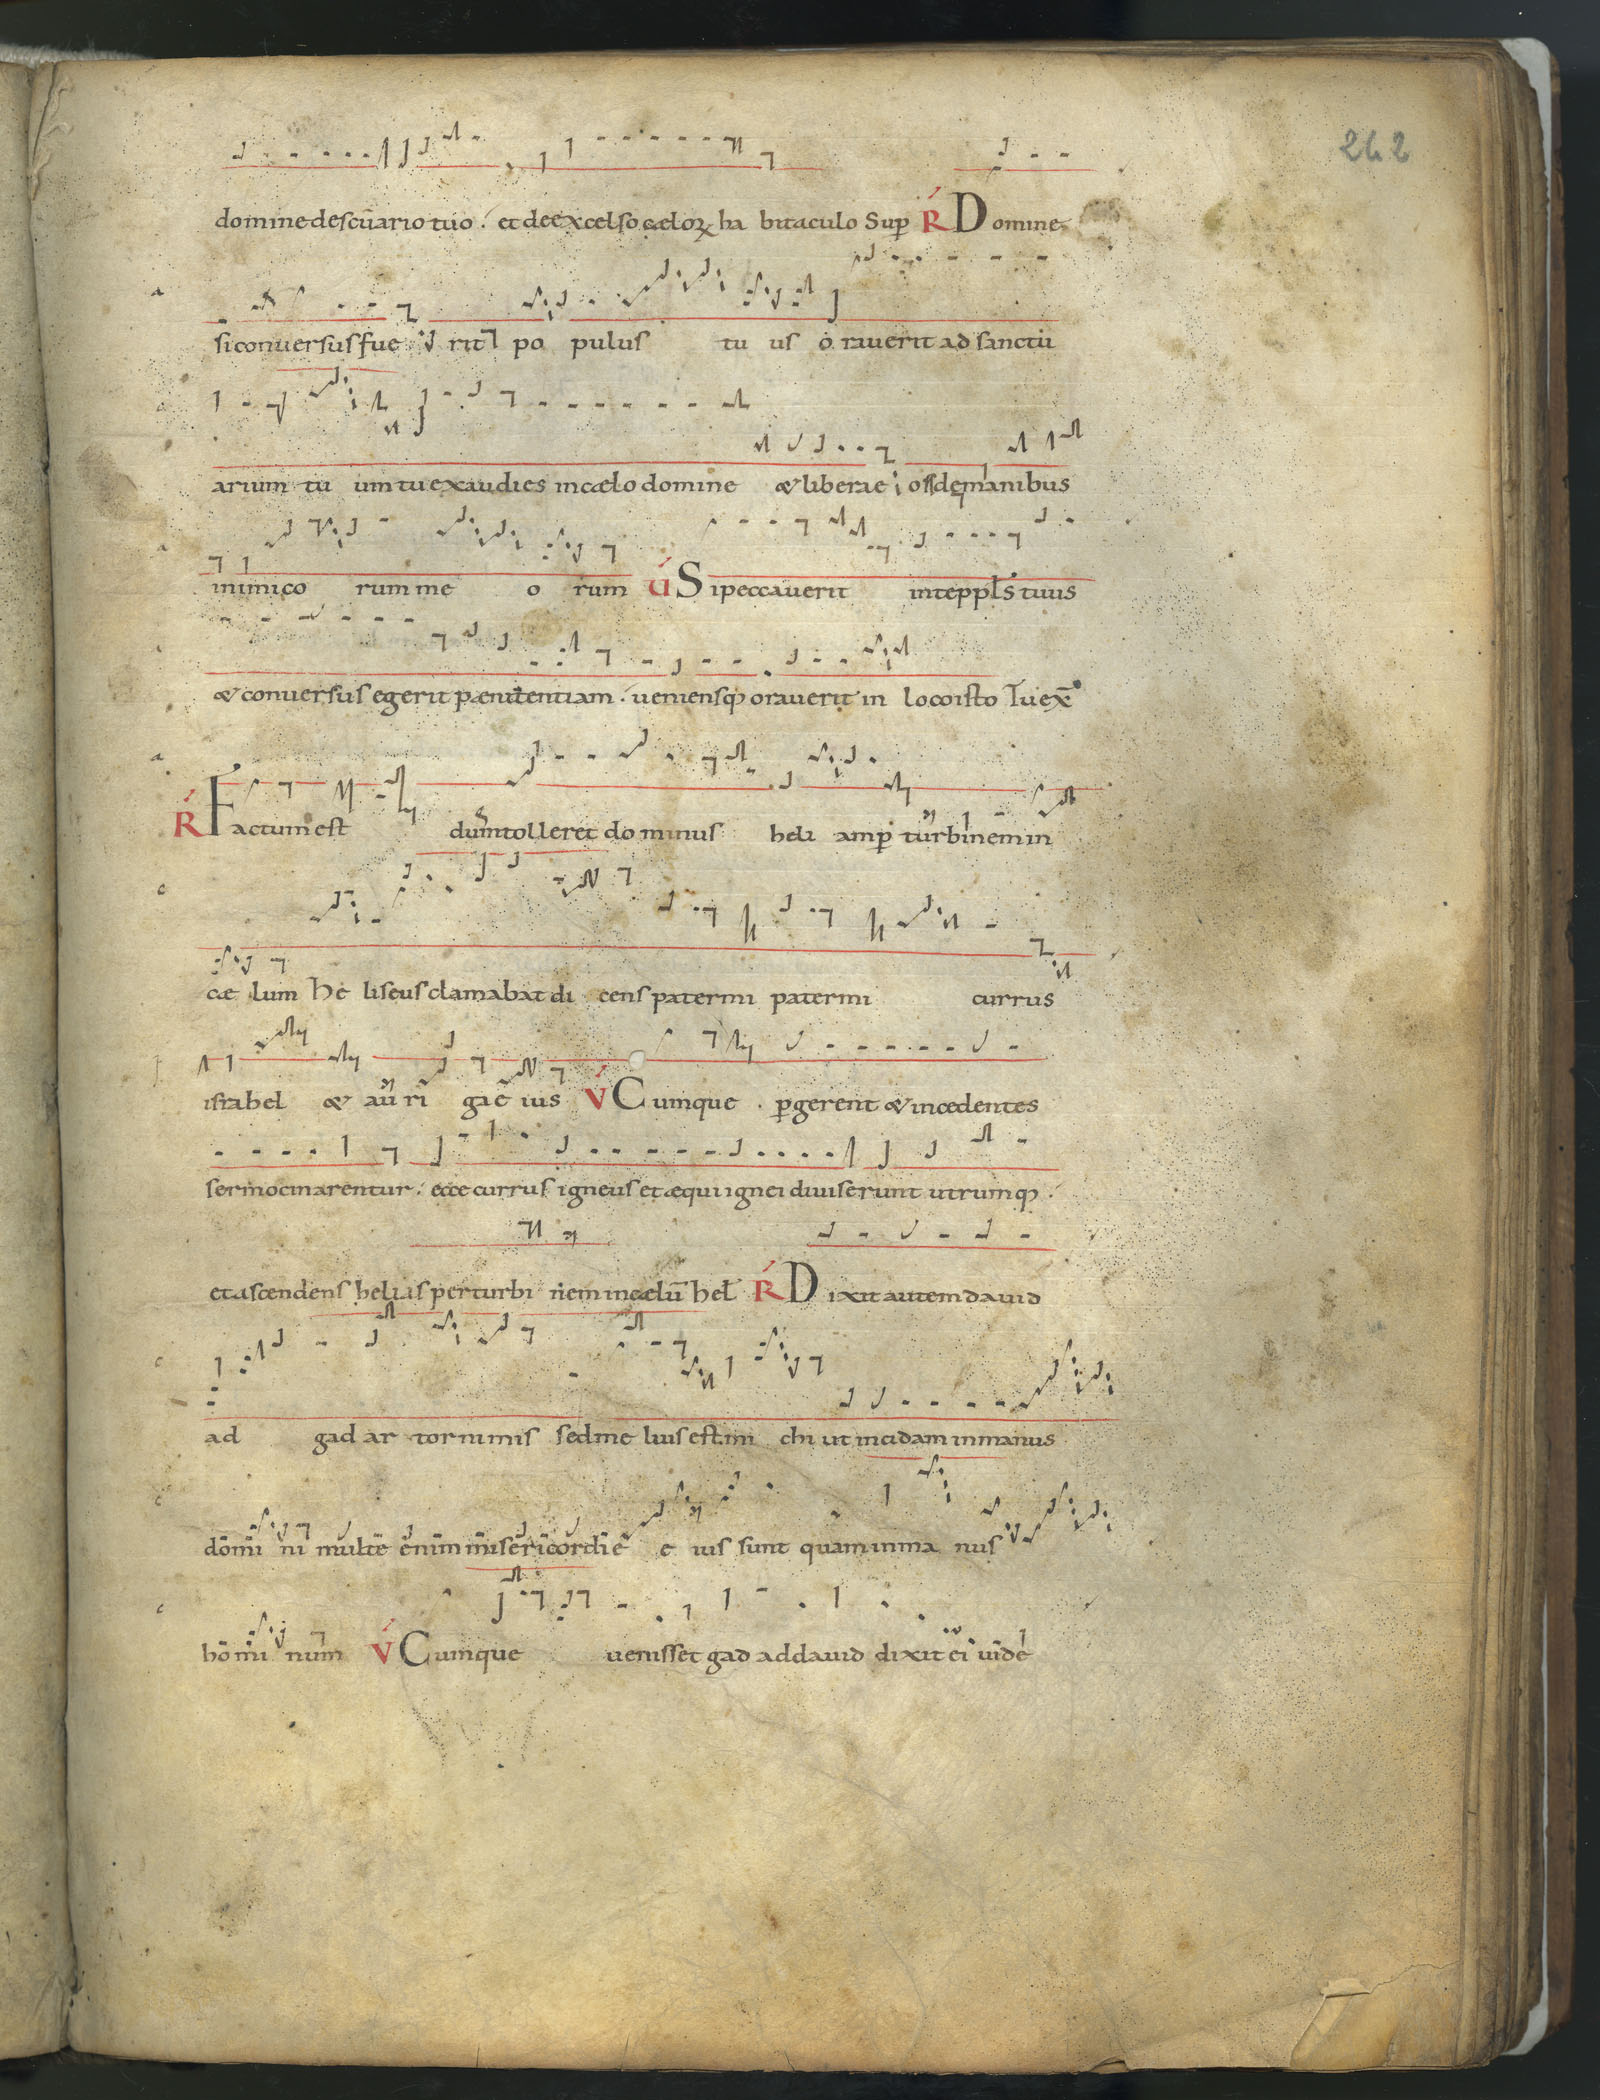 242
domine de scuario tuo. et de excelso cælorꝝ ha bitaculo Sup R Domine
si conversus fue rit po pulus tu us o raverit ad sanctū
arium tu um tu exaudies in cælo domine & libera e os de manibus
inimico rum me o rum V Si peccaverit in te ppls tuus
& conversus egerit pænitentiam. veniensq oraverit in loco isto Tu ex
R Factum est dum tolleret dominus heli am p turbinem in
cæ lum he liseus clamabat di cens pater mi pater mi currus
israhel & au ri ga e ius V Cumque pgerent & incedentes
sermocinarentur. ecce currus igneus et æqui ignei diviserunt utrumq.
et ascendens helias per turbi nem in cælū hel R Dixit autem david
ad gad ar tor nimis sed me lius est mi chi ut incidam in manus
domi ni multe enim misericordie e ius sunt quam in ma nus
homi num V Cumque venisset gad ad david dixit ei vide